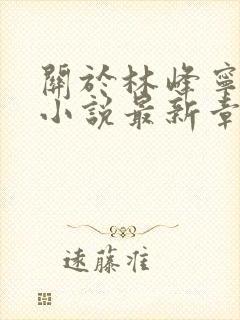 關於林峰寧
小說最新章
遠藤准